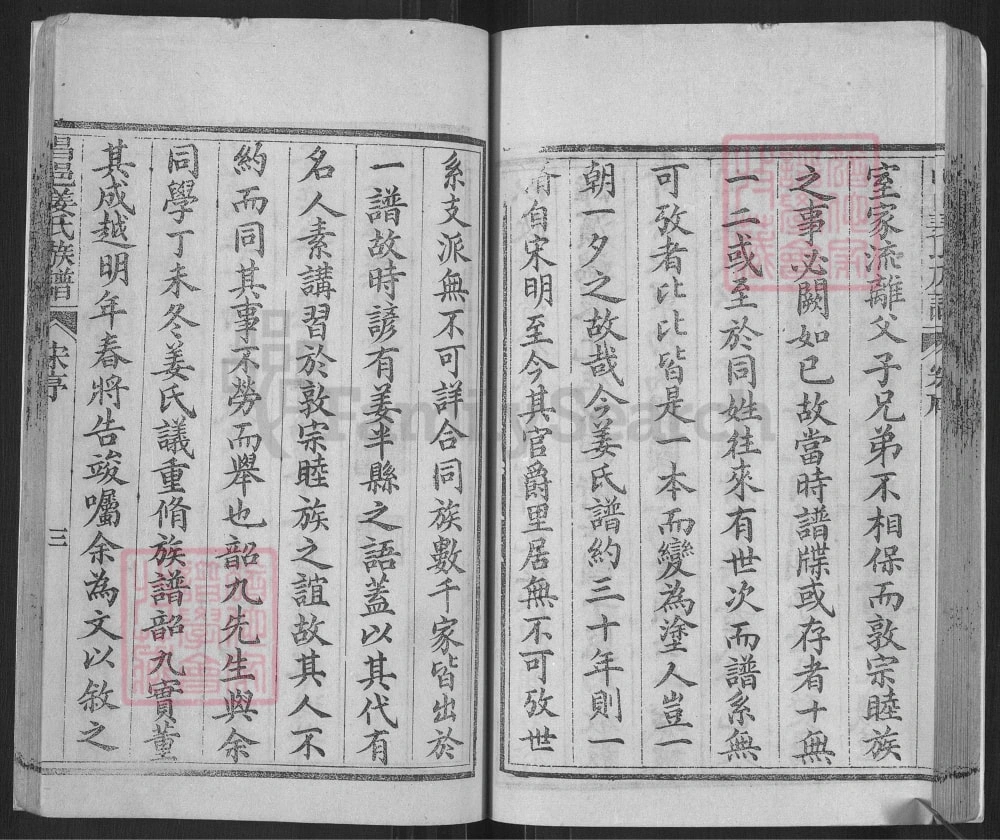 室家流離父子兄弟不相保而敦宗睦族
之事必闕如已故當時譜牒或存者十無
一二或至於同姓往來有世次而譜系無
可攷者比比皆是一本而變為塗人豈一
朝一夕之故哉今姜氏譜約三十年則一
脩自宋明至今其官爵里居無不可攷世
系支派無不可詳合同族數千家皆出於
一譜故時諺有姜半縣之語蓋以其代有
名人素講習於敦宗睦族之誼故其人不
約而同其事不勞而舉也韶九先生與余
同學丁未冬姜氏議重脩族譜韶九實董
其成越明年春將告竣囑余為文以敘之
昌邑姜氏族譜 宋序 三
FamilySearch